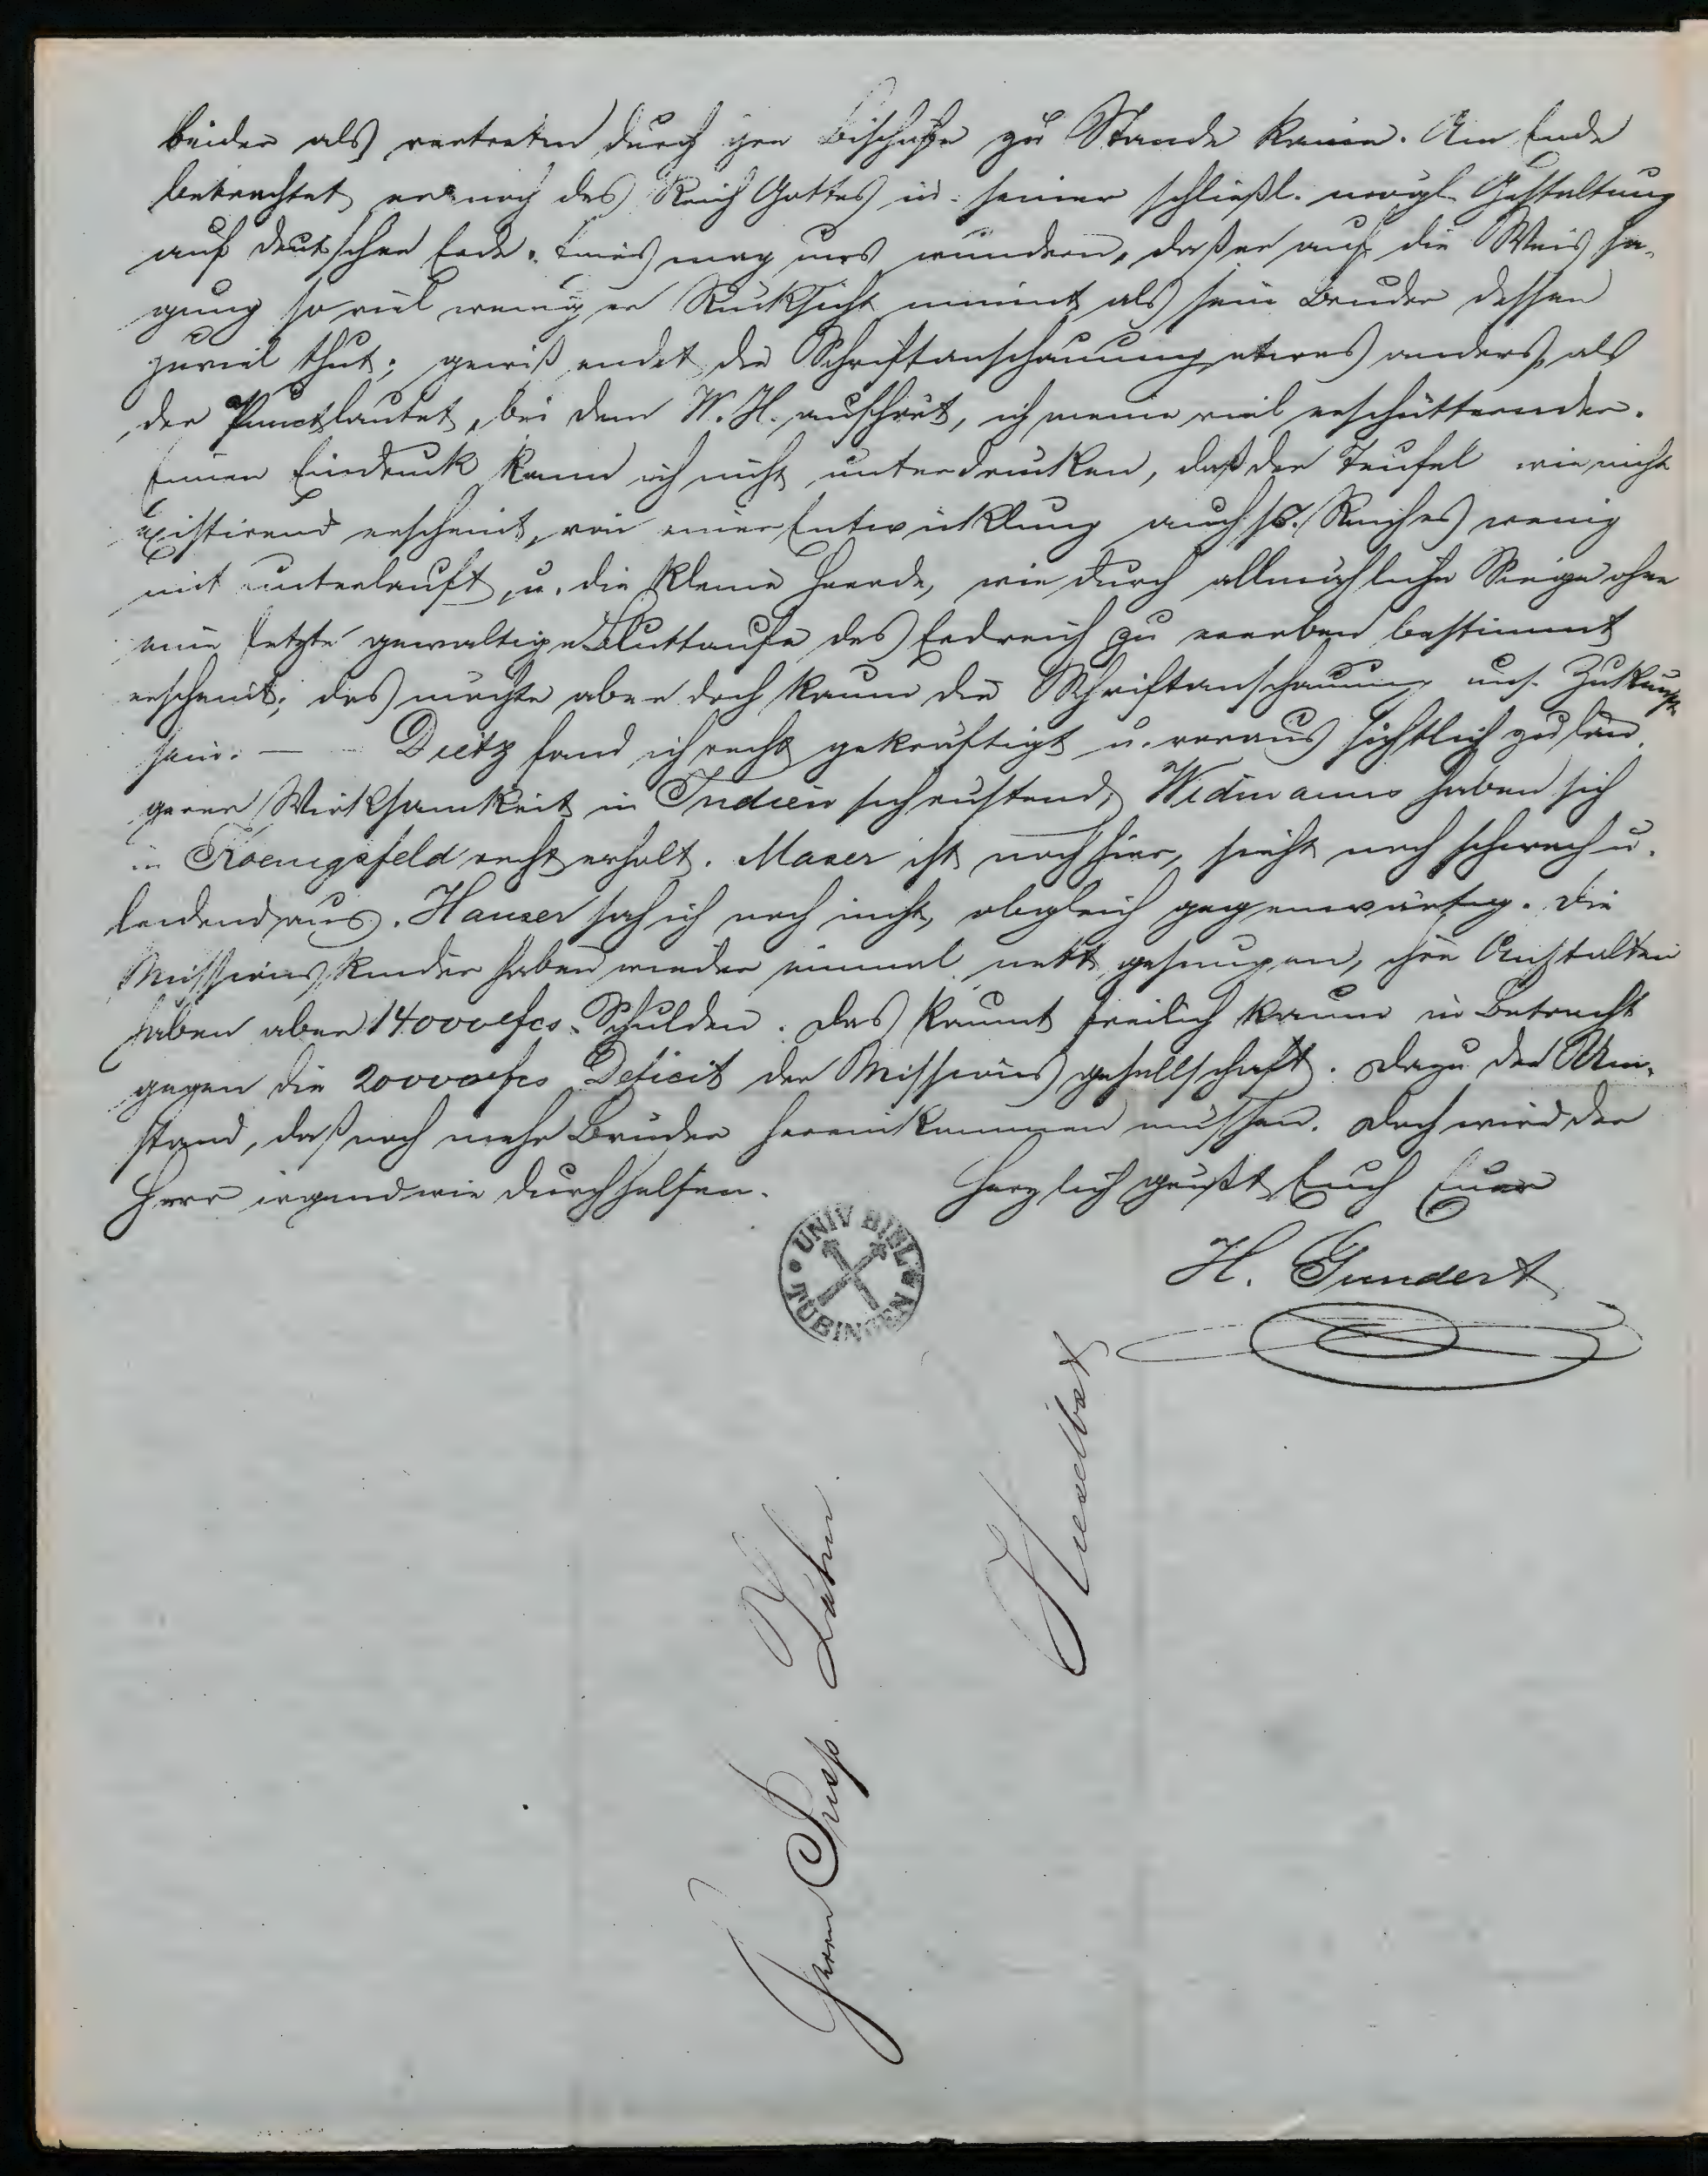 beider als vertreten durch ihre Bischöfe zu Stande käme. Am Ende
betrachtet er noch das Reich Gottes in seiner schließl. mögl. Gestaltung
auf deutscher Erde. Eines mag uns wundern, daß er auf die Weissa-
gung so viel weniger Rücksicht nimmt als sein Bruder dessen
zuviel thut; gewiß endet die Schriftanschauung etwas anders, als
der Punct lautet, bei dem W. H. aufhört, ich meine viel erschütternder.
Einen Eindruck kann ich nicht unterdrücken, daß der Teufel wie nicht
existirend erscheint, von einer Entwicklung auch ss. Reiches wenig
mit unterlauft, u. die kleine Heerde, wie durch allmähliche Siege ohne
eine letzte gewaltige Bluttaufe das Erdreich zu ererben bestimmt
erscheint; das möchte aber doch kaum die Schriftanschauung uns. Zukunft
sein. — Dietz fand ich recht gekräftigt u. voraussichtlich zu län-
gerer Wirksamkeit in Indien sich rüstend, Widmanns haben sich
in Koenigsfeld recht erholt. Mader ist noch hier, sieht noch schwach u.
leidend aus. Hauser sah ich noch nicht, obgleich gegenwärtig. Die
Missionskinder haben wieder einmal nett gesungen, ihre Anstalten
haben aber 14000 fcs. Schulden. Das kommt freilich kaum in Betracht
gegen die 200000 fcs Deficit der Missionsgesellschaft. Dazu der Um-
stand, daß noch mehr Brüder hereinkommen müssen. Doch wird der
Herr irgendwie durchhelfen. Herzlich grüßt Euch Euer
H. Gundert
UNIV BIBL
TÜBINGEN
Herrn Insp. Zahn
Hieselbst